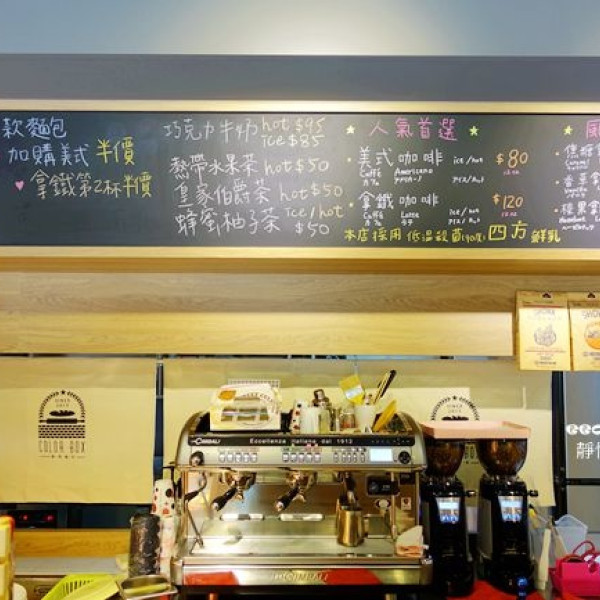 款麵包
加購美式 半價
♥ 拿鐵第2杯半價
巧克力牛奶 hot $95
ice $85
熱帶水果茶 hot $50
皇家伯爵茶 hot $50
蜂蜜柚子茶 ice/hot
$50
★ 人氣首選 ★
• 美式咖啡 ice/hot $80
Caffé Americano
12 oz
• 拿鐵咖啡 ice/hot $120
Caffé Latte
12 oz
本店採用 低溫殺菌 四方 鮮乳
SINCE
COLOR BOX
LACIMBALI
Eccellenza italiana dal 1912
LACIMBALI
SINCE
靜